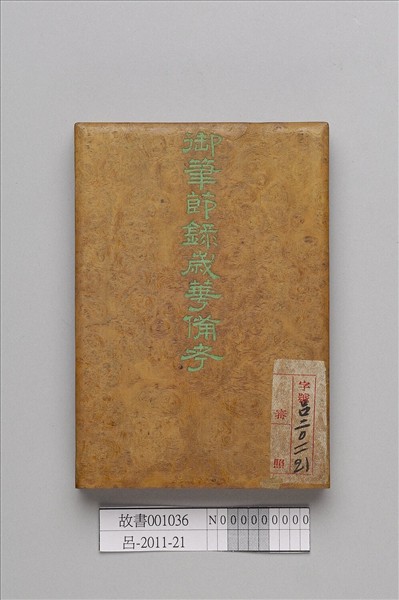 御筆節錄歲華備考
字號
呂二〇一一21
故書001036
呂-2011-21
N000000000